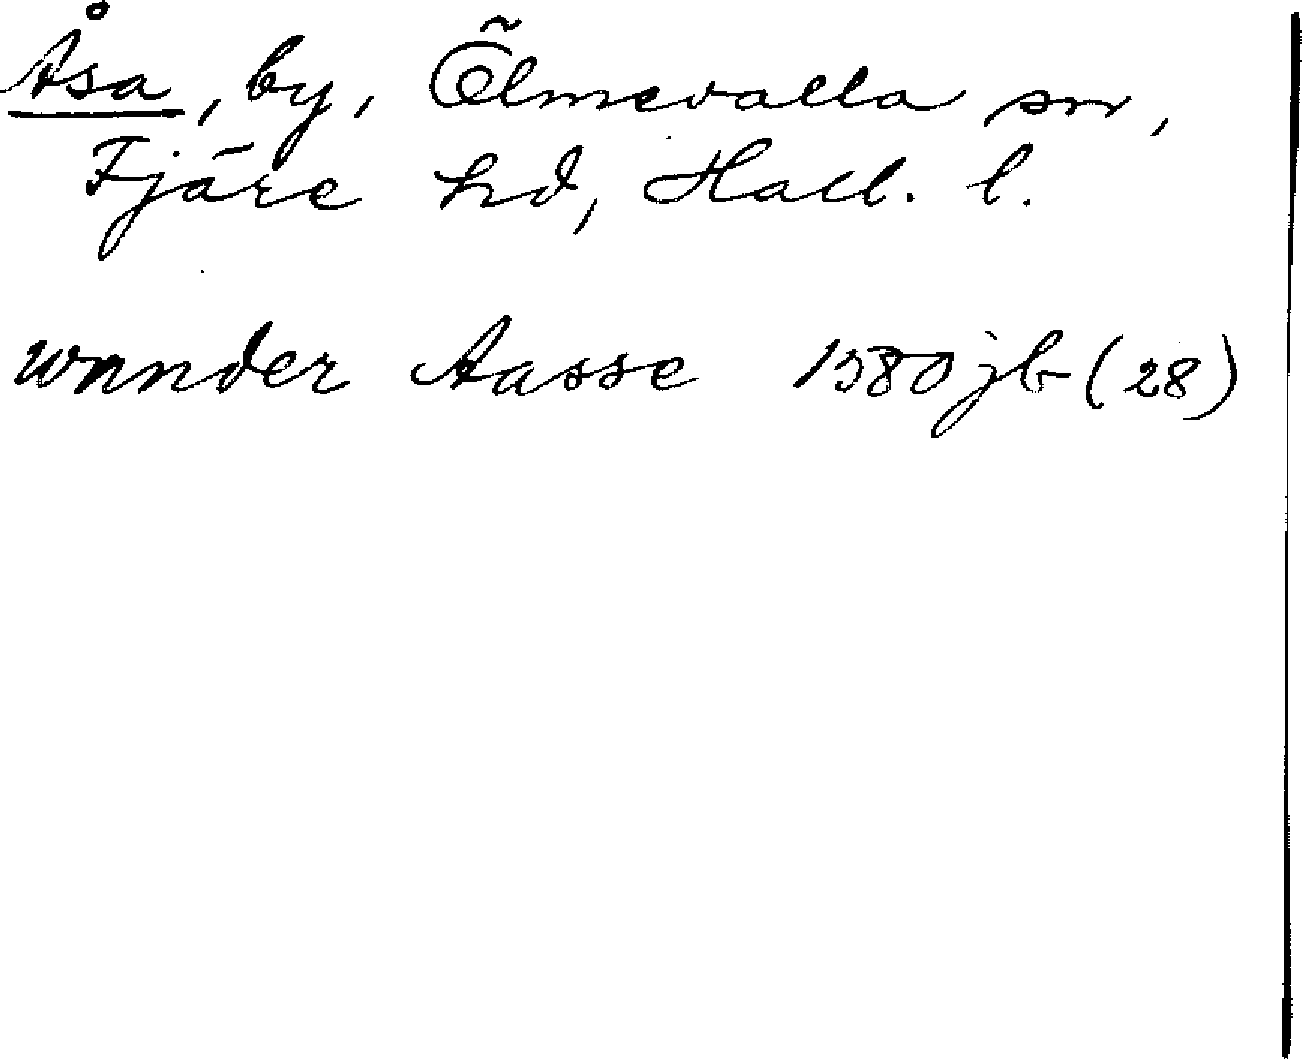 Åsa, by, Ölmevalla sn,
Fjäre hd, Hall. l.
wnnder Aasse 1580 jb (28)